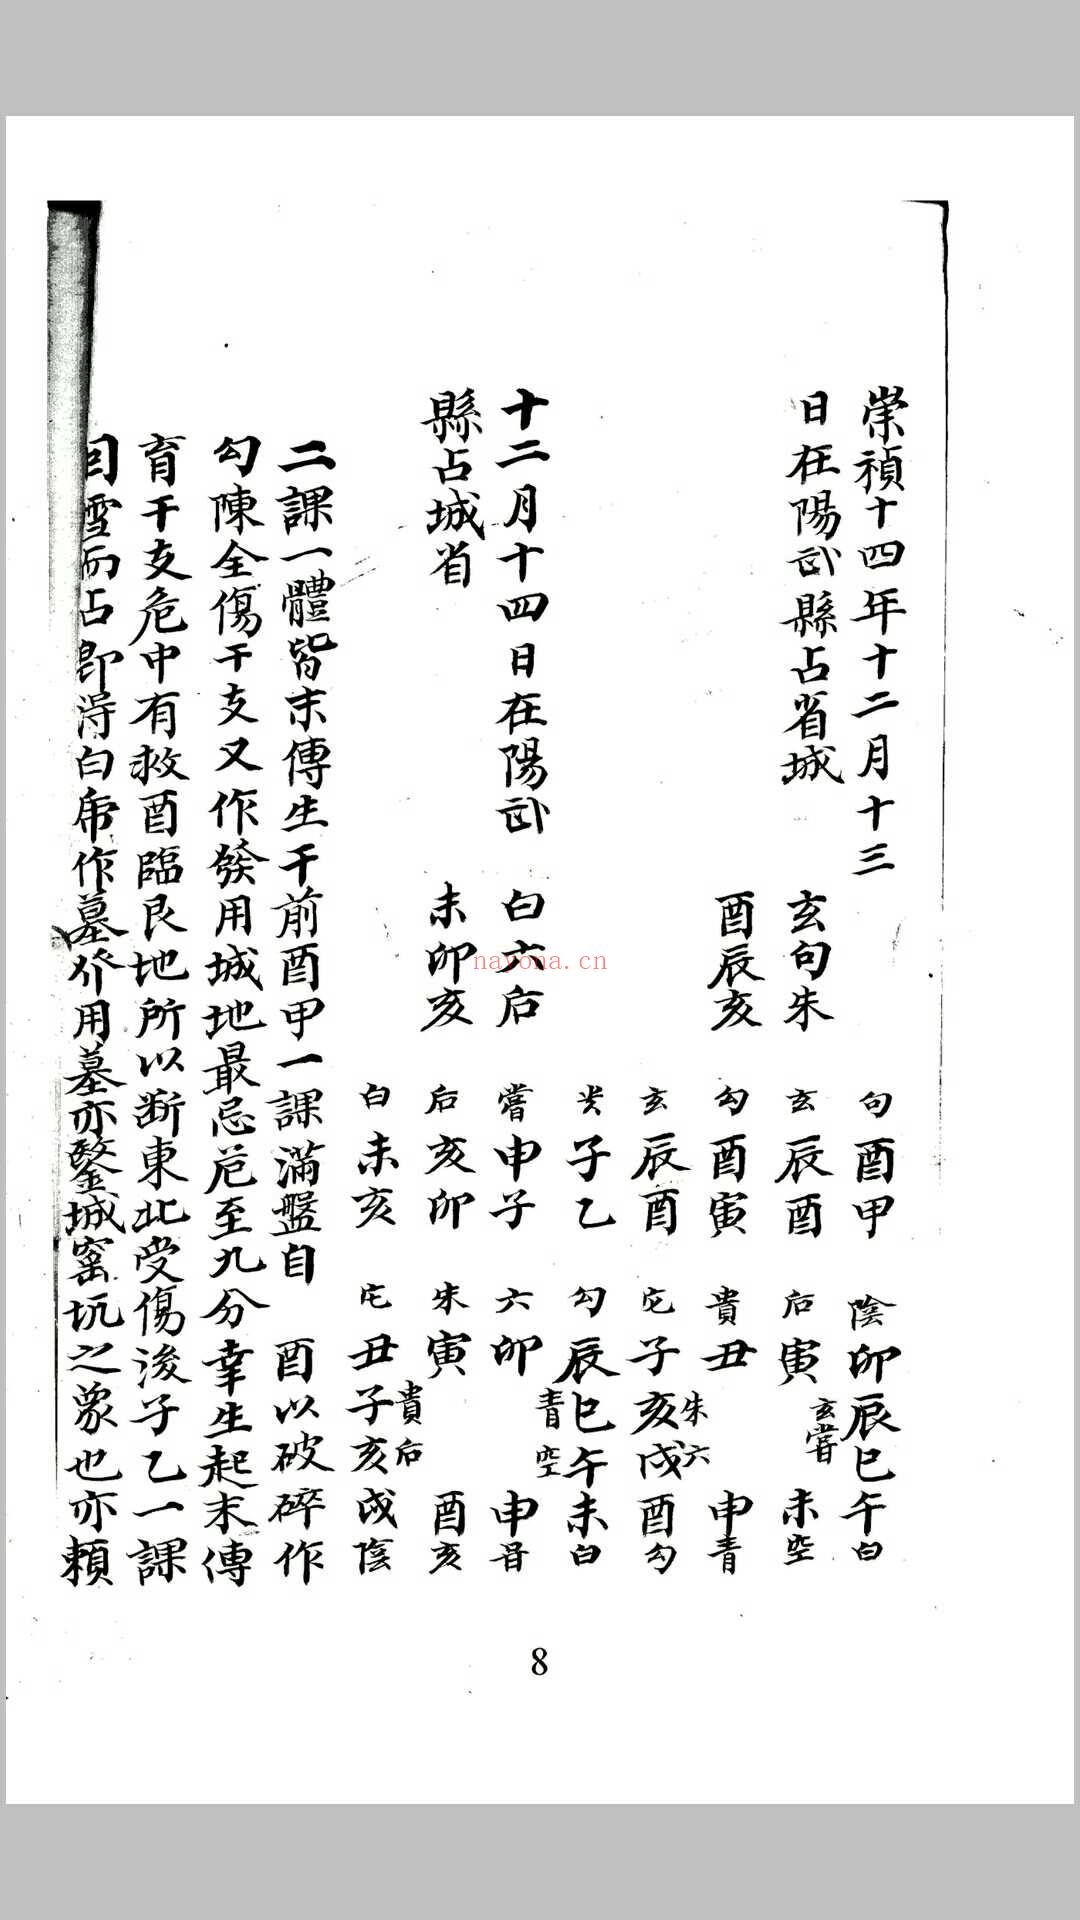 崇禎十四年十二月十三
日在陽武縣占省城
玄句朱
酉辰亥
句酉甲
玄辰酉
勾酉寅
玄辰酉
陰卯辰巳午白
后寅 玄嘗 未空
貴丑 申青
朱六
子亥戌酉勾
十二月十四日在陽武
縣占城省
白六后
未卯亥
子乙
嘗申子
后亥卯
白未亥
勾辰巳午未白
青空
六卯 申
朱寅 酉亥
貴后
丑子亥戌陰
二課一體皆末傳生干前酉甲一課滿盤自 酉以破碎作
勾陳全傷干支又作發用城地最忌危至九分幸生起末傳
育干支危中有救酉臨艮地所以断東北受傷後子乙一課
雪而占即得白虎作墓發用墓亦鑿城窑坑之象也亦賴
8
nayona.cn